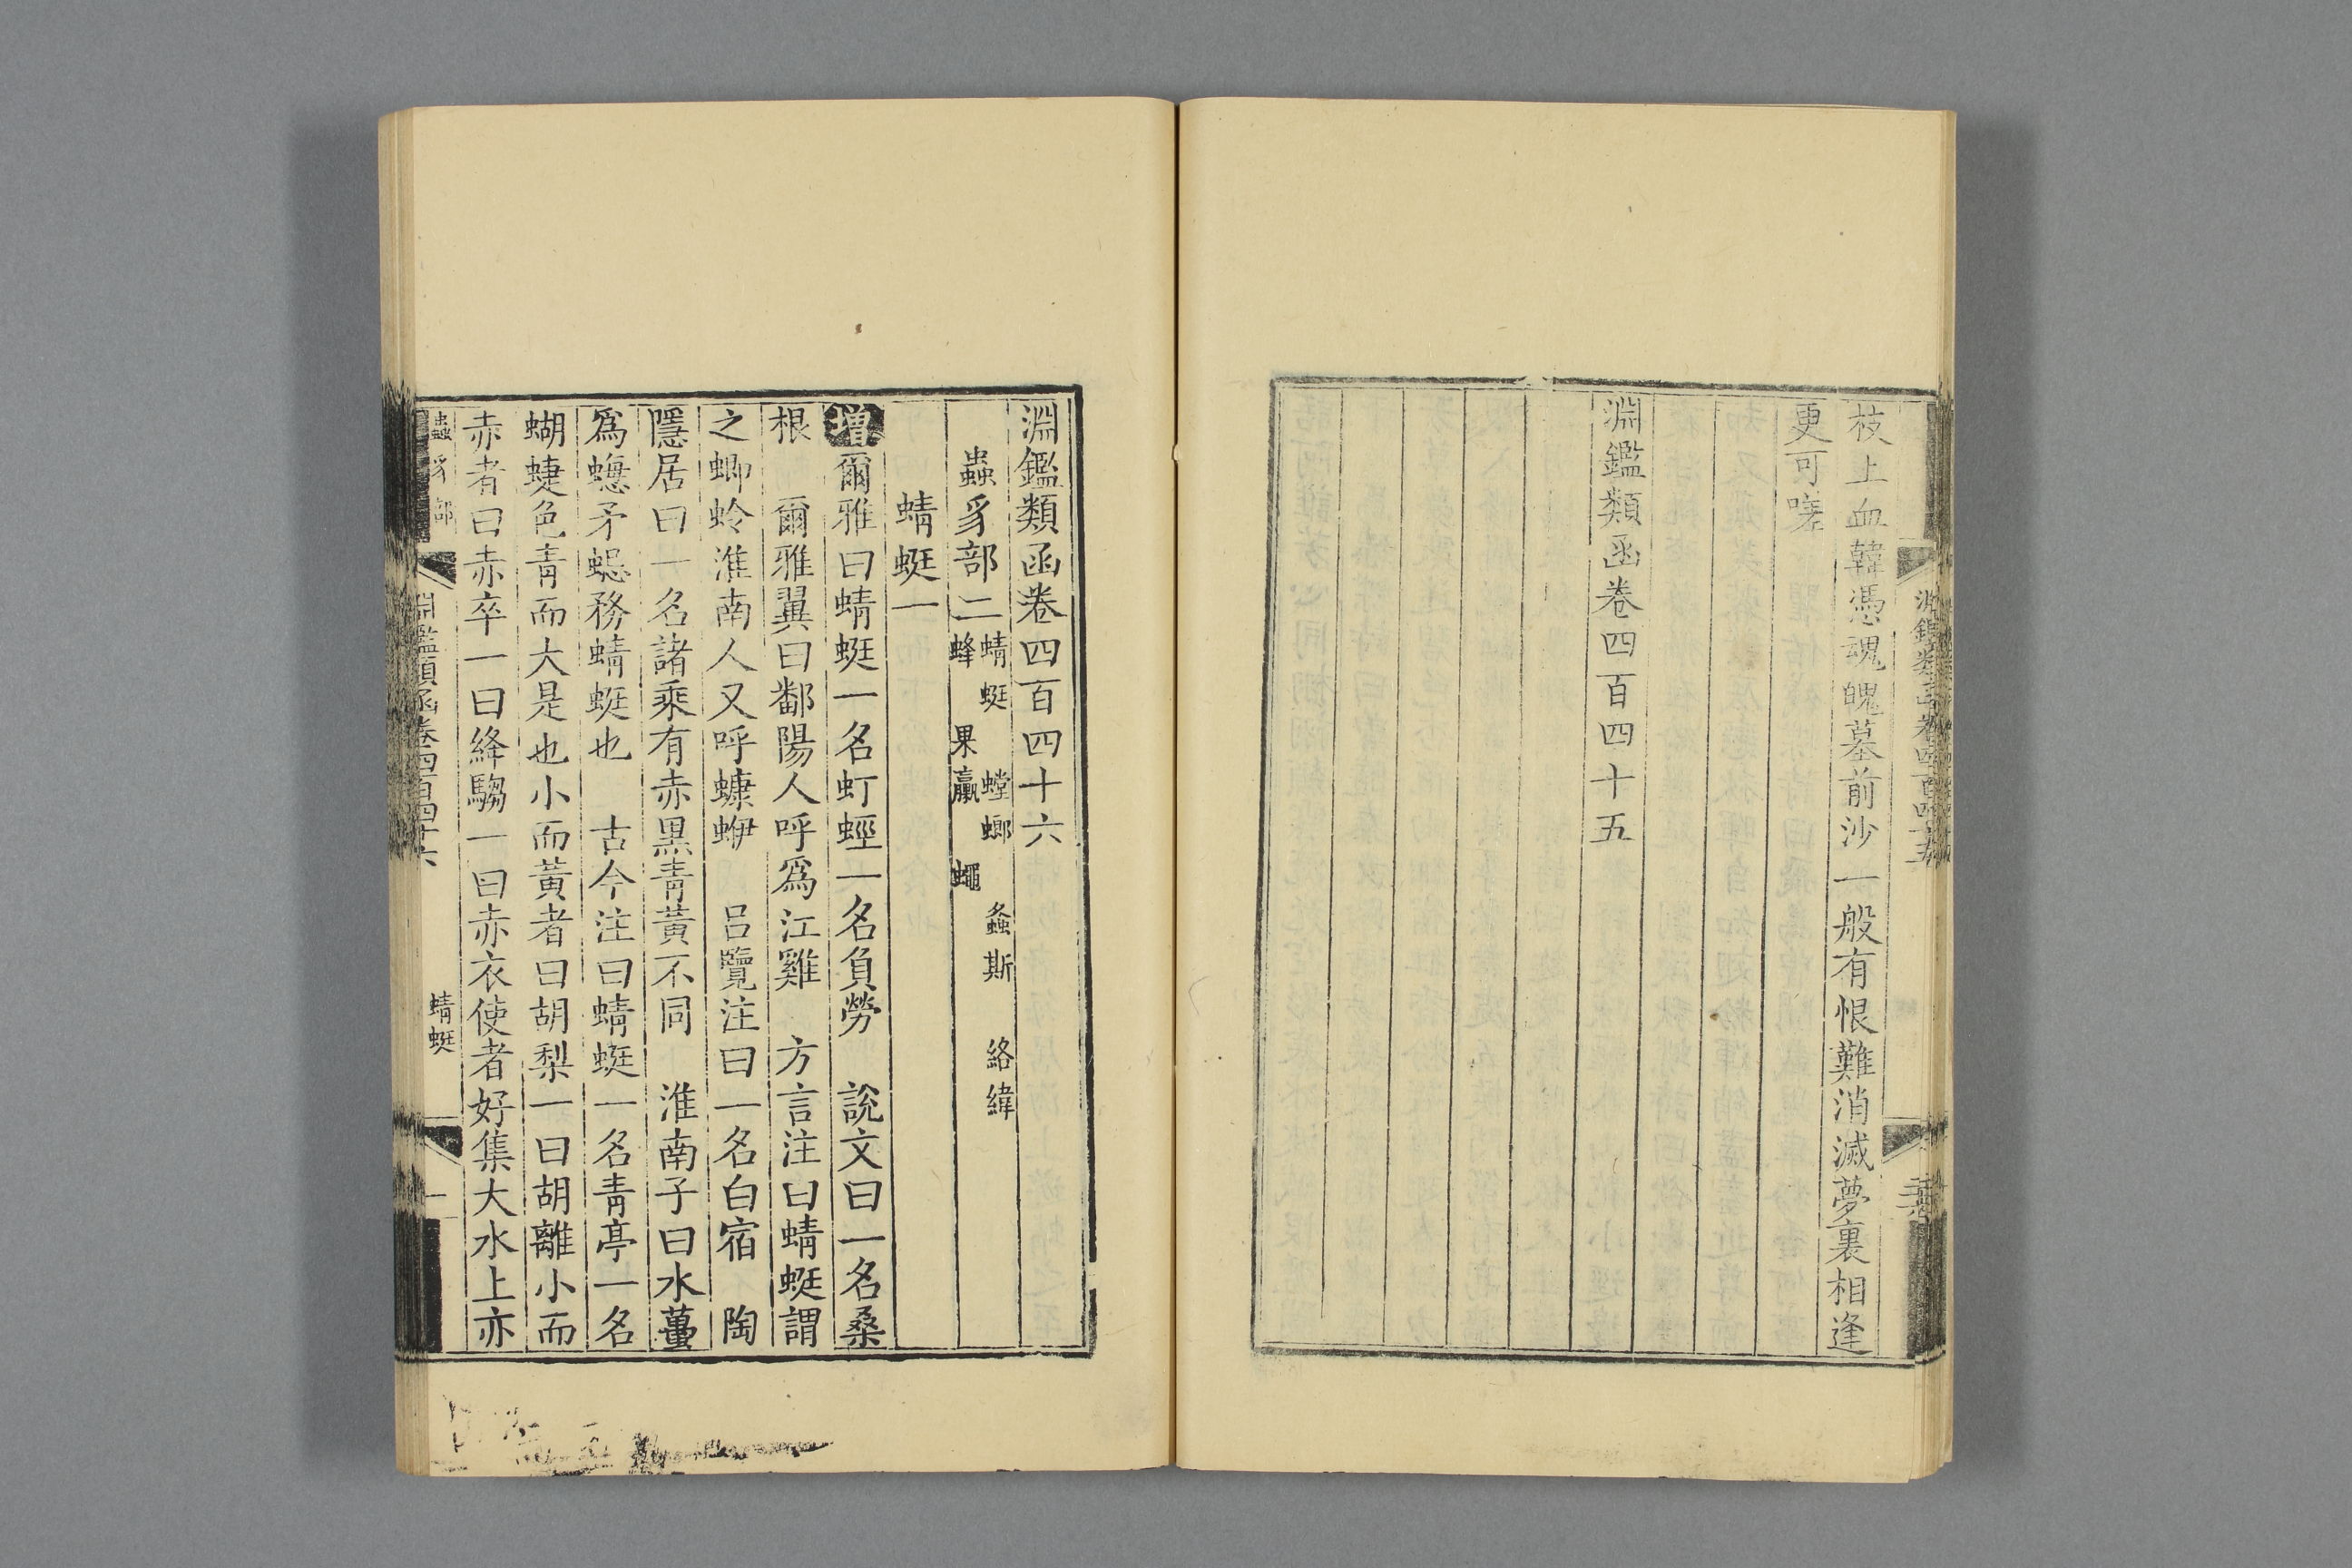 枝上血韓憑魂魄墓前沙一般有恨難消滅夢裏相逢
更可嗟
淵鑑類函卷四百四十五
淵鑑類函卷四百四十六
蟲豸部二
蜻蜓 螳螂 螽斯 絡緯
蜂 果蠃 蠅
蜻蜓一
增爾雅曰蜻蜓一名虰蛵一名負勞 說文曰一名桑
根 爾雅翼曰鄱陽人呼爲江雞 方言注曰蜻蜓謂
之蝍蛉淮南人又呼蠊蛜 呂覽注曰一名白宿 陶
隱居曰一名諸乘有赤黑青黃不同 淮南子曰水蠆
爲蟌矛蟌務蜻蜓也 古今注曰蜻蜓一名青亭一名
蝴蜨色青而大是也小而黃者曰胡梨一曰胡離小而
赤者曰赤卒一曰絳騶一曰赤衣使者好集大水上亦
蟲豸部 淵鑑類函卷四百四十六 蜻蜓 一